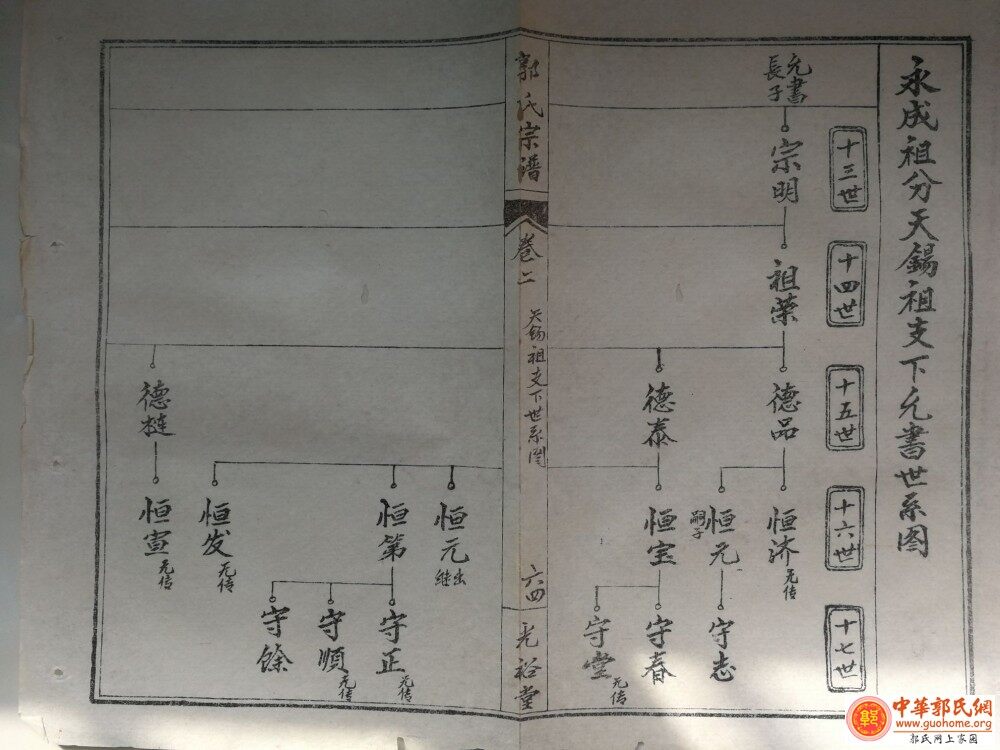 永成祖分天錫祖支下允書世系图
十三世
十四世
十五世
十六世
十七世
允書
長子
宗明
祖荣
德品
德泰
恒济
无传
恒元
嗣子
恒宝
守志
守春
守堂
无传
郭氏宗谱
卷二
天錫祖支下世系图
六四
光裕堂
德梿
恒元
出继
恒第
恒发
无传
恒宣
无传
守正
无传
守順
无传
守餘
中華郭氏網
www.guohome.org
郭氏网上家园